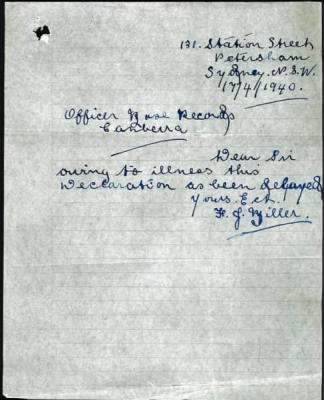 131. Station Street
Petersham
Sydney. N.S.W.
17/4/1940.
Officer Base Records
Canberra
Dear Sir
owing to illness this
Declaration as been delayed
Yours. Ect.
Miller.